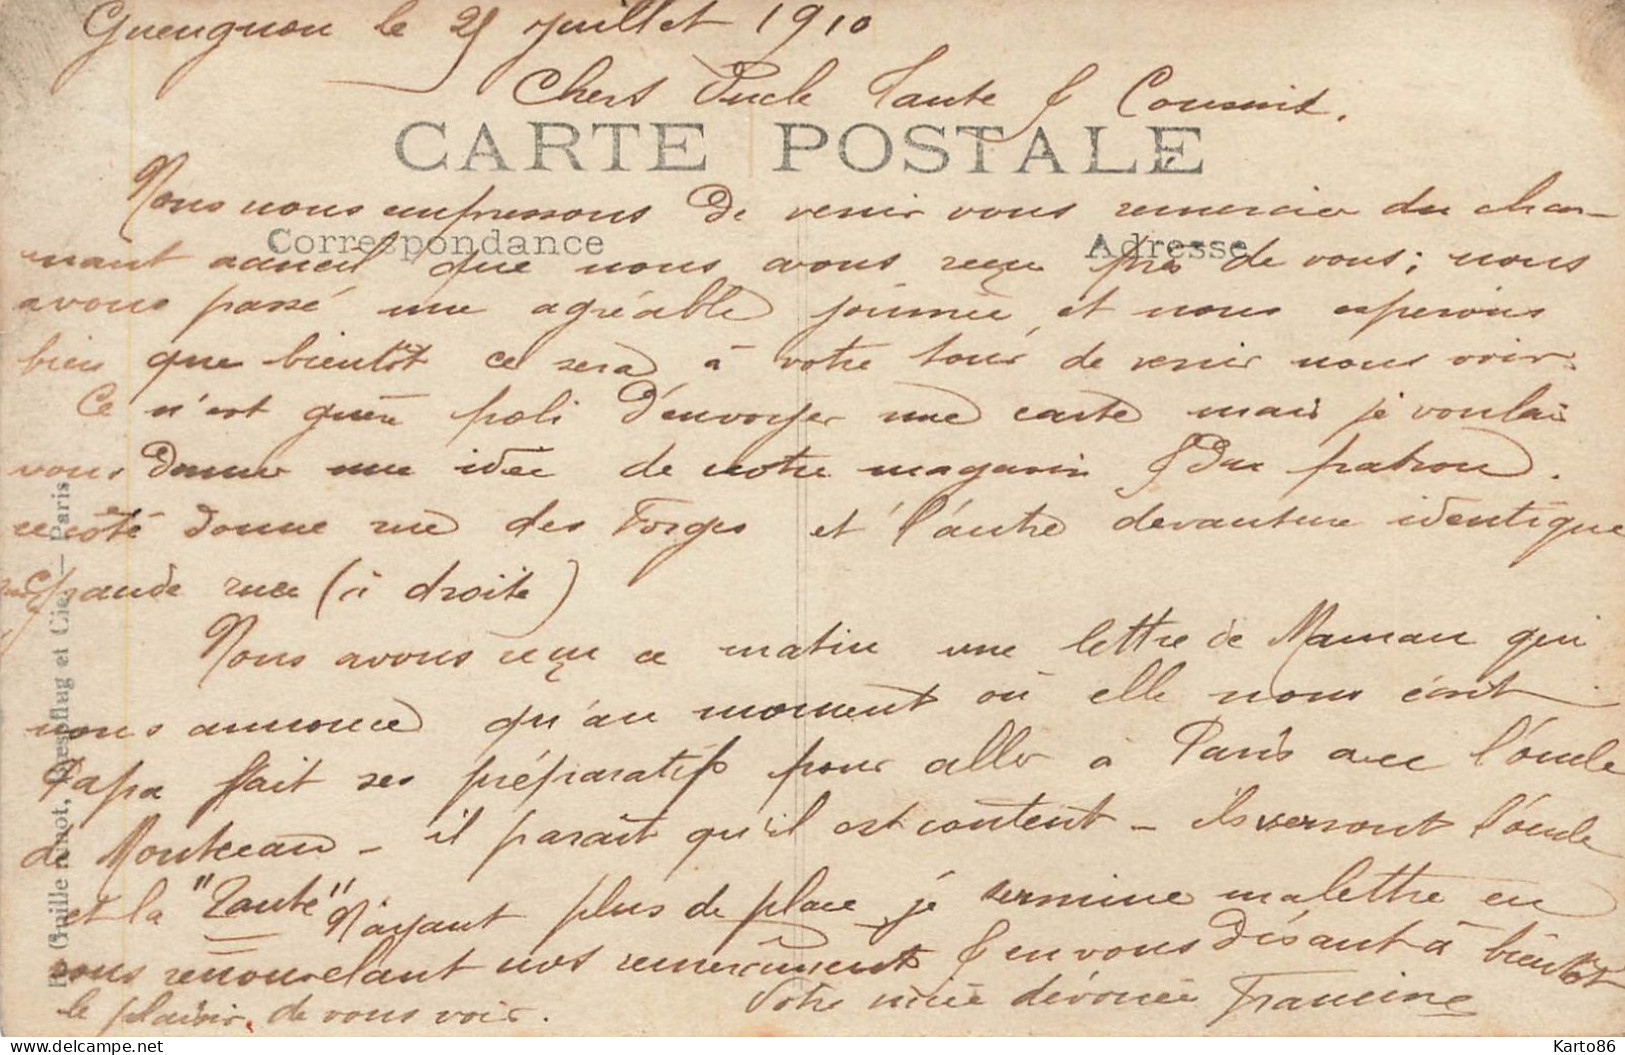 Gueugnon le 25 juillet 1910
Chers Oncle Tante & Cousins.
CARTE POSTALE
Nous nous empressons de venir vous remercier du char-
Correspondance
Adresse
mant accueil que nous avons reçu près de vous; nous
avons passé une agréable journée, et nous esperons
bien que bientôt ce sera à votre tour de venir nous voir.
Ce n'est guère poli d'envoyer une carte mais je voulais
vous donner une idée de notre magasin & du patron.
ce côté donne rue des Forges et l'autre devanture identique
Grande rue (à droite)
Nous avons reçu ce matin une lettre de Maman qui
nous annonce qu'au moment où elle nous écrit
Papa fait ses préparatifs pour aller à Paris avec l'oncle
de Montceau - il parait qu'il est content - ils verront l'oncle
et la "Tante" N'ayant plus de place je termine ma lettre en
vous renouvelant nos remerciments & en vous disant à bientôt
le plaisir de vous voir.
Votre nièce dévouée Francine
R. Guilleminot, Boespflug et Cie. — Paris
delcampe.net
Karto86